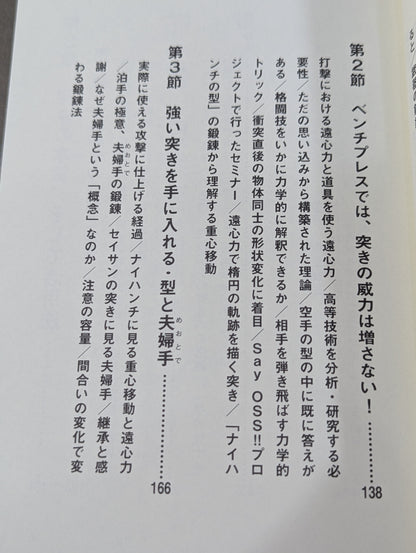 第2節　ベンチプレスでは、突きの威力は増さない！…………138
打撃における遠心力と道具を使う遠心力／高等技術を分析・研究する必
要性／ただの思い込みから構築された理論／空手の型の中に既に答えが
ある／格闘技をいかに力学的に解釈できるか／相手を弾き飛ばす力学的
トリック／衝突直後の物体同士の形状変化に着目／Say OSS!!プロ
ジェクトで行ったセミナー／遠心力で楕円の軌跡を描く突き／「ナイハ
ンチの型」の鍛錬から理解する重心移動
第3節　強い突きを手に入れる・型と夫婦手（めおとで）…………166
実際に使える攻撃に仕上げる経過／ナイハンチに見る重心移動と遠心力
／泊手の極意、夫婦手（めおとで）の鍛錬／セイサンの突きに見る夫婦手／継承と感
謝／なぜ夫婦手という「概念」なのか／注意の容量／間合いの変化で変
わる鍛錬法